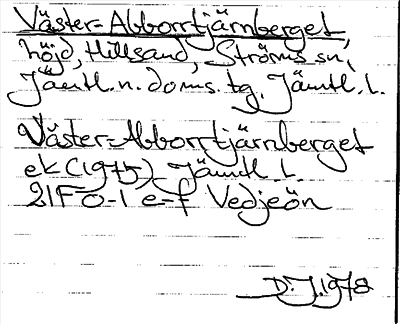 Väster=Abborrtjärnberget,
höjd, Hillsand, Ströms sn,
Jämtl. n. doms. tg, Jämtl. l.
Väster=Abborrtjärnberget
ek (1975) Jämtl. l.
21F 0-1 e-f Vedjeön
D. J. 1978